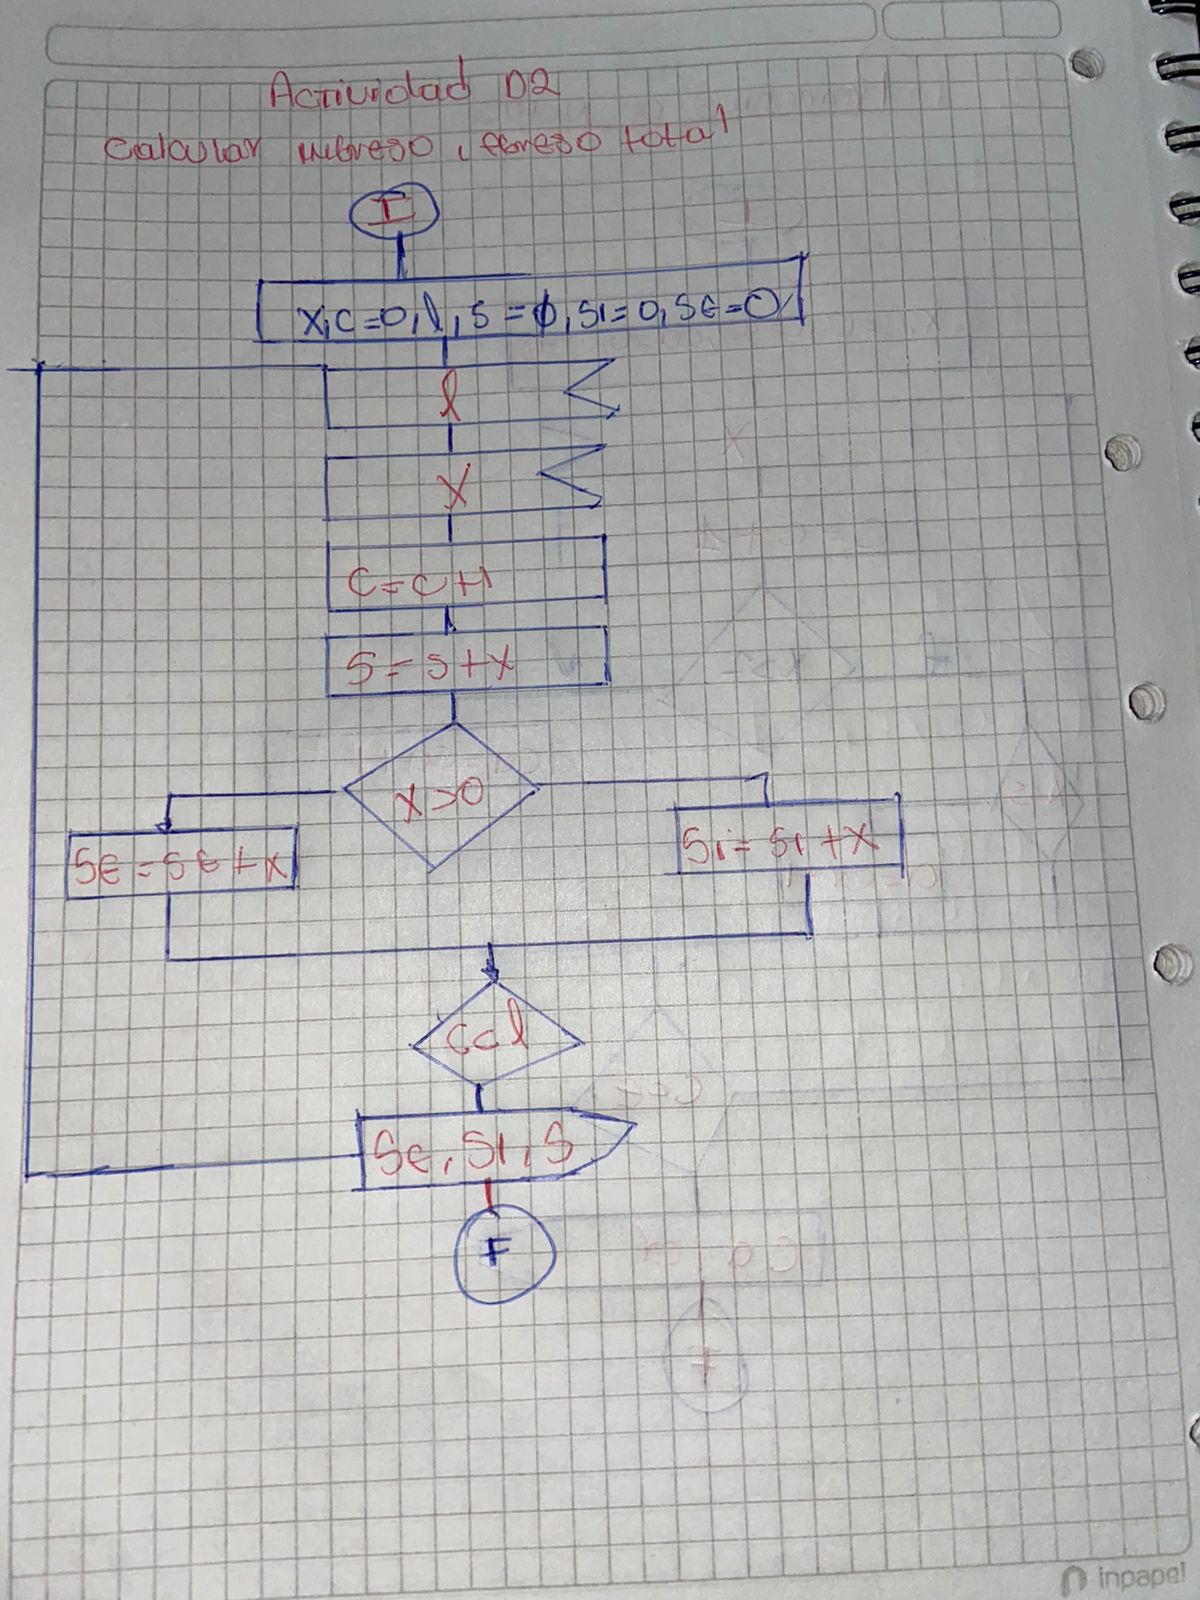 Actividad 02
Calcular ingreso, egreso total
I
X, C=0, l, S=0, SI=0, SE=0
l
X
C=C+1
S=S+X
X>0
SE=SE+X
SI=SI+X
C<l
SE, SI, S
F
inpapel